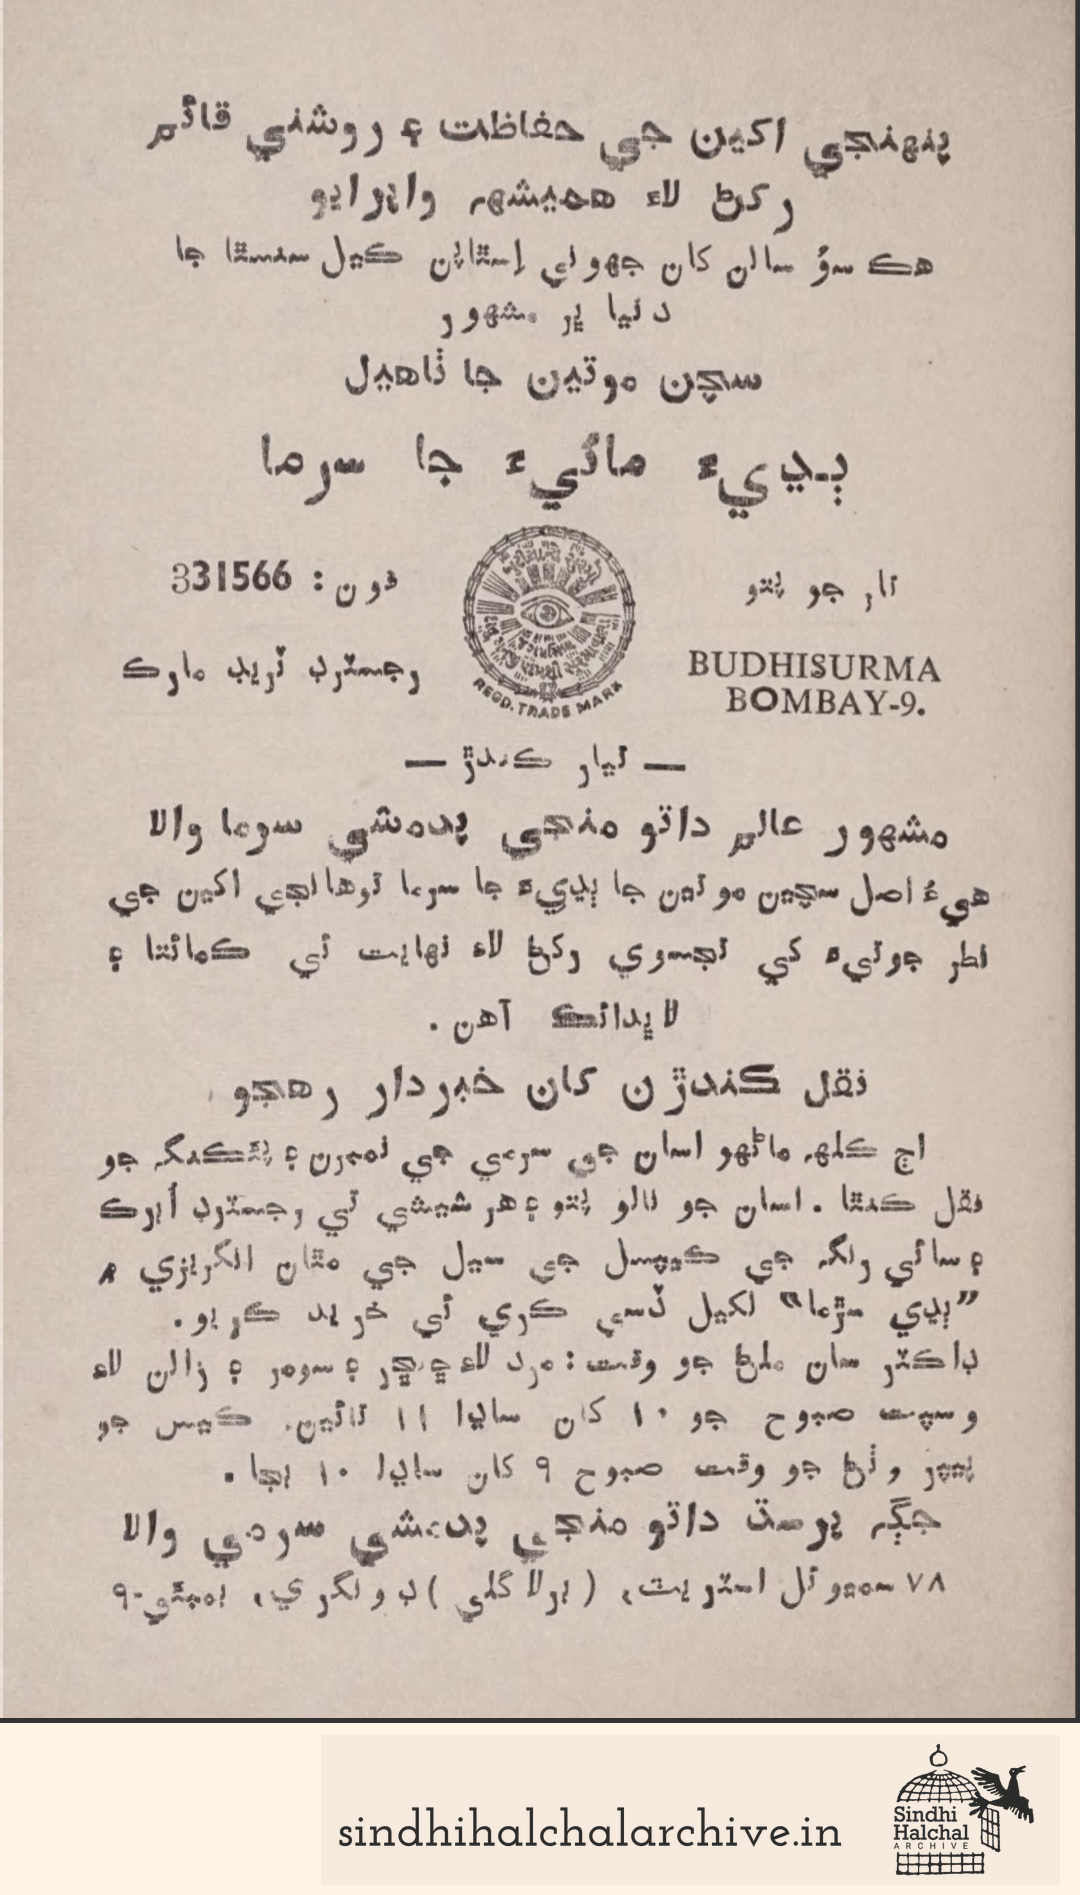 پنهنجي اکين جي حفاظت ۽ روشني قائم
رکڻ لاءِ هميشہ واپرايو
هڪ سؤ سالن کان جهوني اِستاپن ڪيل سنستا جا
دنيا ۾ مشهور
سچن موتين جا ٺاهيل
ٻڍيءَ مائيءَ جا سرما
تار جو پتو
BUDHISURMA
BOMBAY-9.
فون : 331566
رجسٽرڊ ٽريڊ مارڪ
REGD. TRADE MARK
— تيار ڪندڙ —
مشهور عالم داتو منجي پدمشي سرما والا
هيءُ اصل سچين موتين جا ٻڍيءَ جا سرما توهانجي اکين جي
نظر جوتيءَ کي رکڻ لاءِ نهايت ئي ڪمائتا ۽
لاڀدائڪ آهن .
نقل ڪندڙن کان خبردار رهجو
اڄ ڪلهہ ماڻهو اسان جي سرمي جي نمبرن ۽ پئڪنگہ جو
نقل ڪندا . اسان جو نالو پتو ۽ هر شيشي تي رجسٽرڊ اُبرڪ
۽ سائي رنگہ جي ڪيپسل جي سيل جي مٿان انگريزي ۾
”ٻڍي سرما“ لکيل ڏسي ڪري ئي خريد ڪريو .
ڊاڪٽر سان ملڻ جو وقت : مرد لاءِ ڇنڇر ۽ سومر ۽ زالن لاءِ
وسپت صبوح جو ١٠ کان ساڍا ١١ تائين. ڪيس جو
پيپر وٺڻ جو وقت صبوح ٩ کان ساڍا ١٠ بجا .
جڳہ پرست داتو منجي پدمشي سرمي والا
٧٨ سميوئل اسٽريٽ، ( برلا گلي ) ڊونگري، بمبئي-٩
sindhihalchalarchive.in
Sindhi
Halchal
ARCHIVE